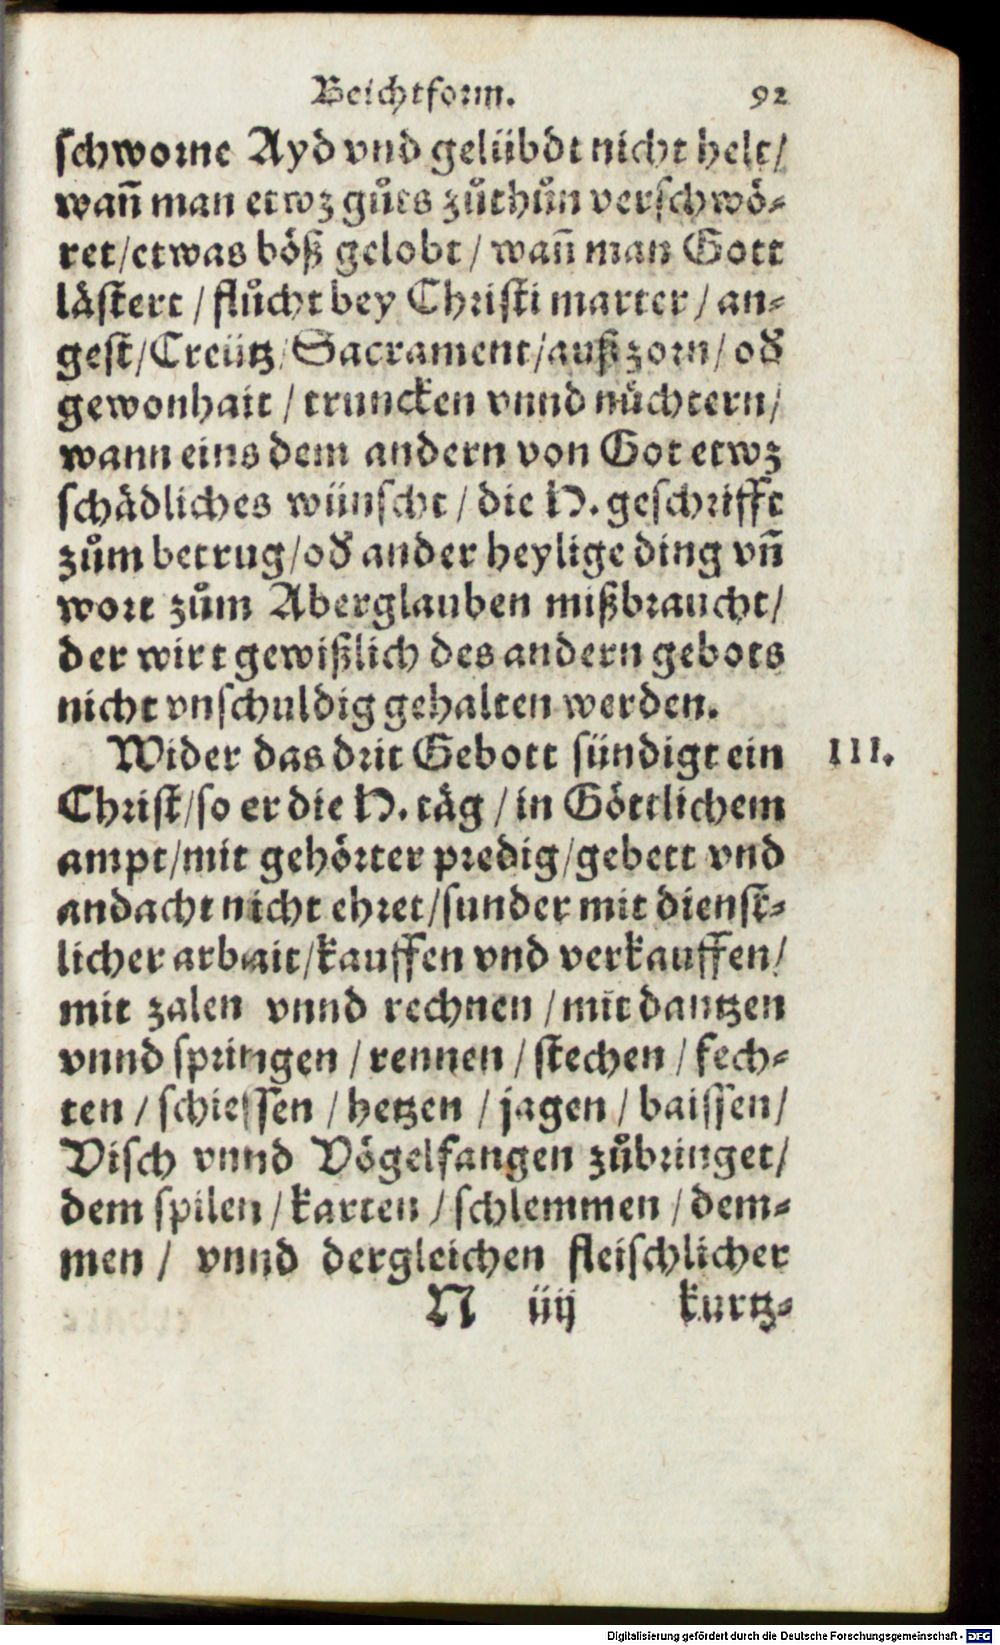 Beichtform. 92
schworne Ayd vnd gelübdt nicht helt/
wañ man etwz gůts zůthůn verschwö-
ret/etwas böß gelobt/ wañ man Gott
lästert / flůcht bey Christi marter/ an-
gest/Creütz/Sacrament/auß zorn/ oď
gewonhait / truncken vnnd nüchtern/
wann eins dem andern von Got etwz
schädliches wünscht / die H. geschrifft
zům betrug/oď ander heylige ding vñ
wort zům Aberglauben mißbraucht/
der wirt gewißlich des andern gebots
nicht vnschuldig gehalten werden.
Wider das drit Gebott sündigt ein III.
Christ/so er die H. täg / in Göttlichem
ampt/mit gehörter predig/gebett vnd
andacht nicht ehret/sunder mit dienst-
licher arbait/kauffen vnd verkauffen/
mit zalen vnnd rechnen / mit dantzen
vnnd springen / rennen / stechen / fech-
ten / schiessen / hetzen / jagen / baissen/
Visch vnnd Vögelfangen zůbringet/
dem spilen / karten / schlemmen / dem-
men / vnnd dergleichen fleischlicher
N iiij kurtz-
Digitalisierung gefördert durch die Deutsche Forschungsgemeinschaft - DFG